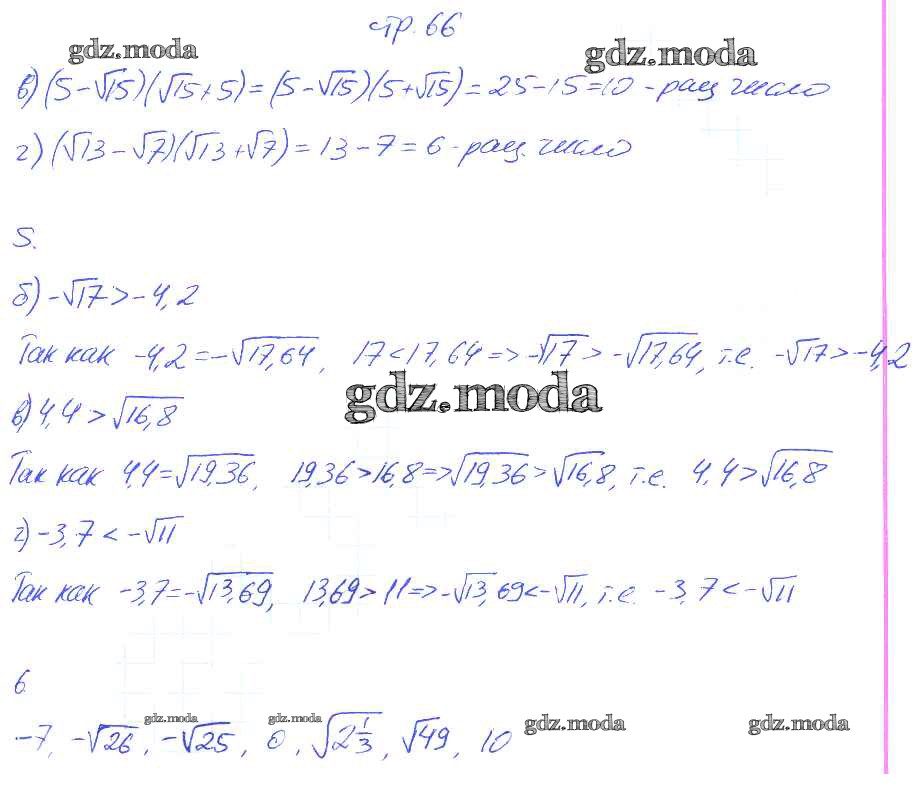 стр. 66
gdz.moda gdz.moda
в) (5-√15)(√15+5)=(5-√15)(5+√15)=25-15=10 - рац число
г) (√13-√7)(√13+√7)=13-7=6 - рац. число
5.
б) -√17>-4,2
Так как -4,2=-√17,64, 17<17,64=>-√17>-√17,64, т.е. -√17>-4,2
gdz.moda
в) 4,4>√16,8
Так как 4,4=√19,36, 19,36>16,8=>√19,36>√16,8, т.е. 4,4>√16,8
г) -3,7<-√11
Так как -3,7=-√13,69, 13,69>11=>-√13,69<-√11, т.е. -3,7<-√11
6
gdz.moda gdz.moda gdz.moda gdz.moda
-7, -√26, -√25, 0, √2 1/3, √49, 10